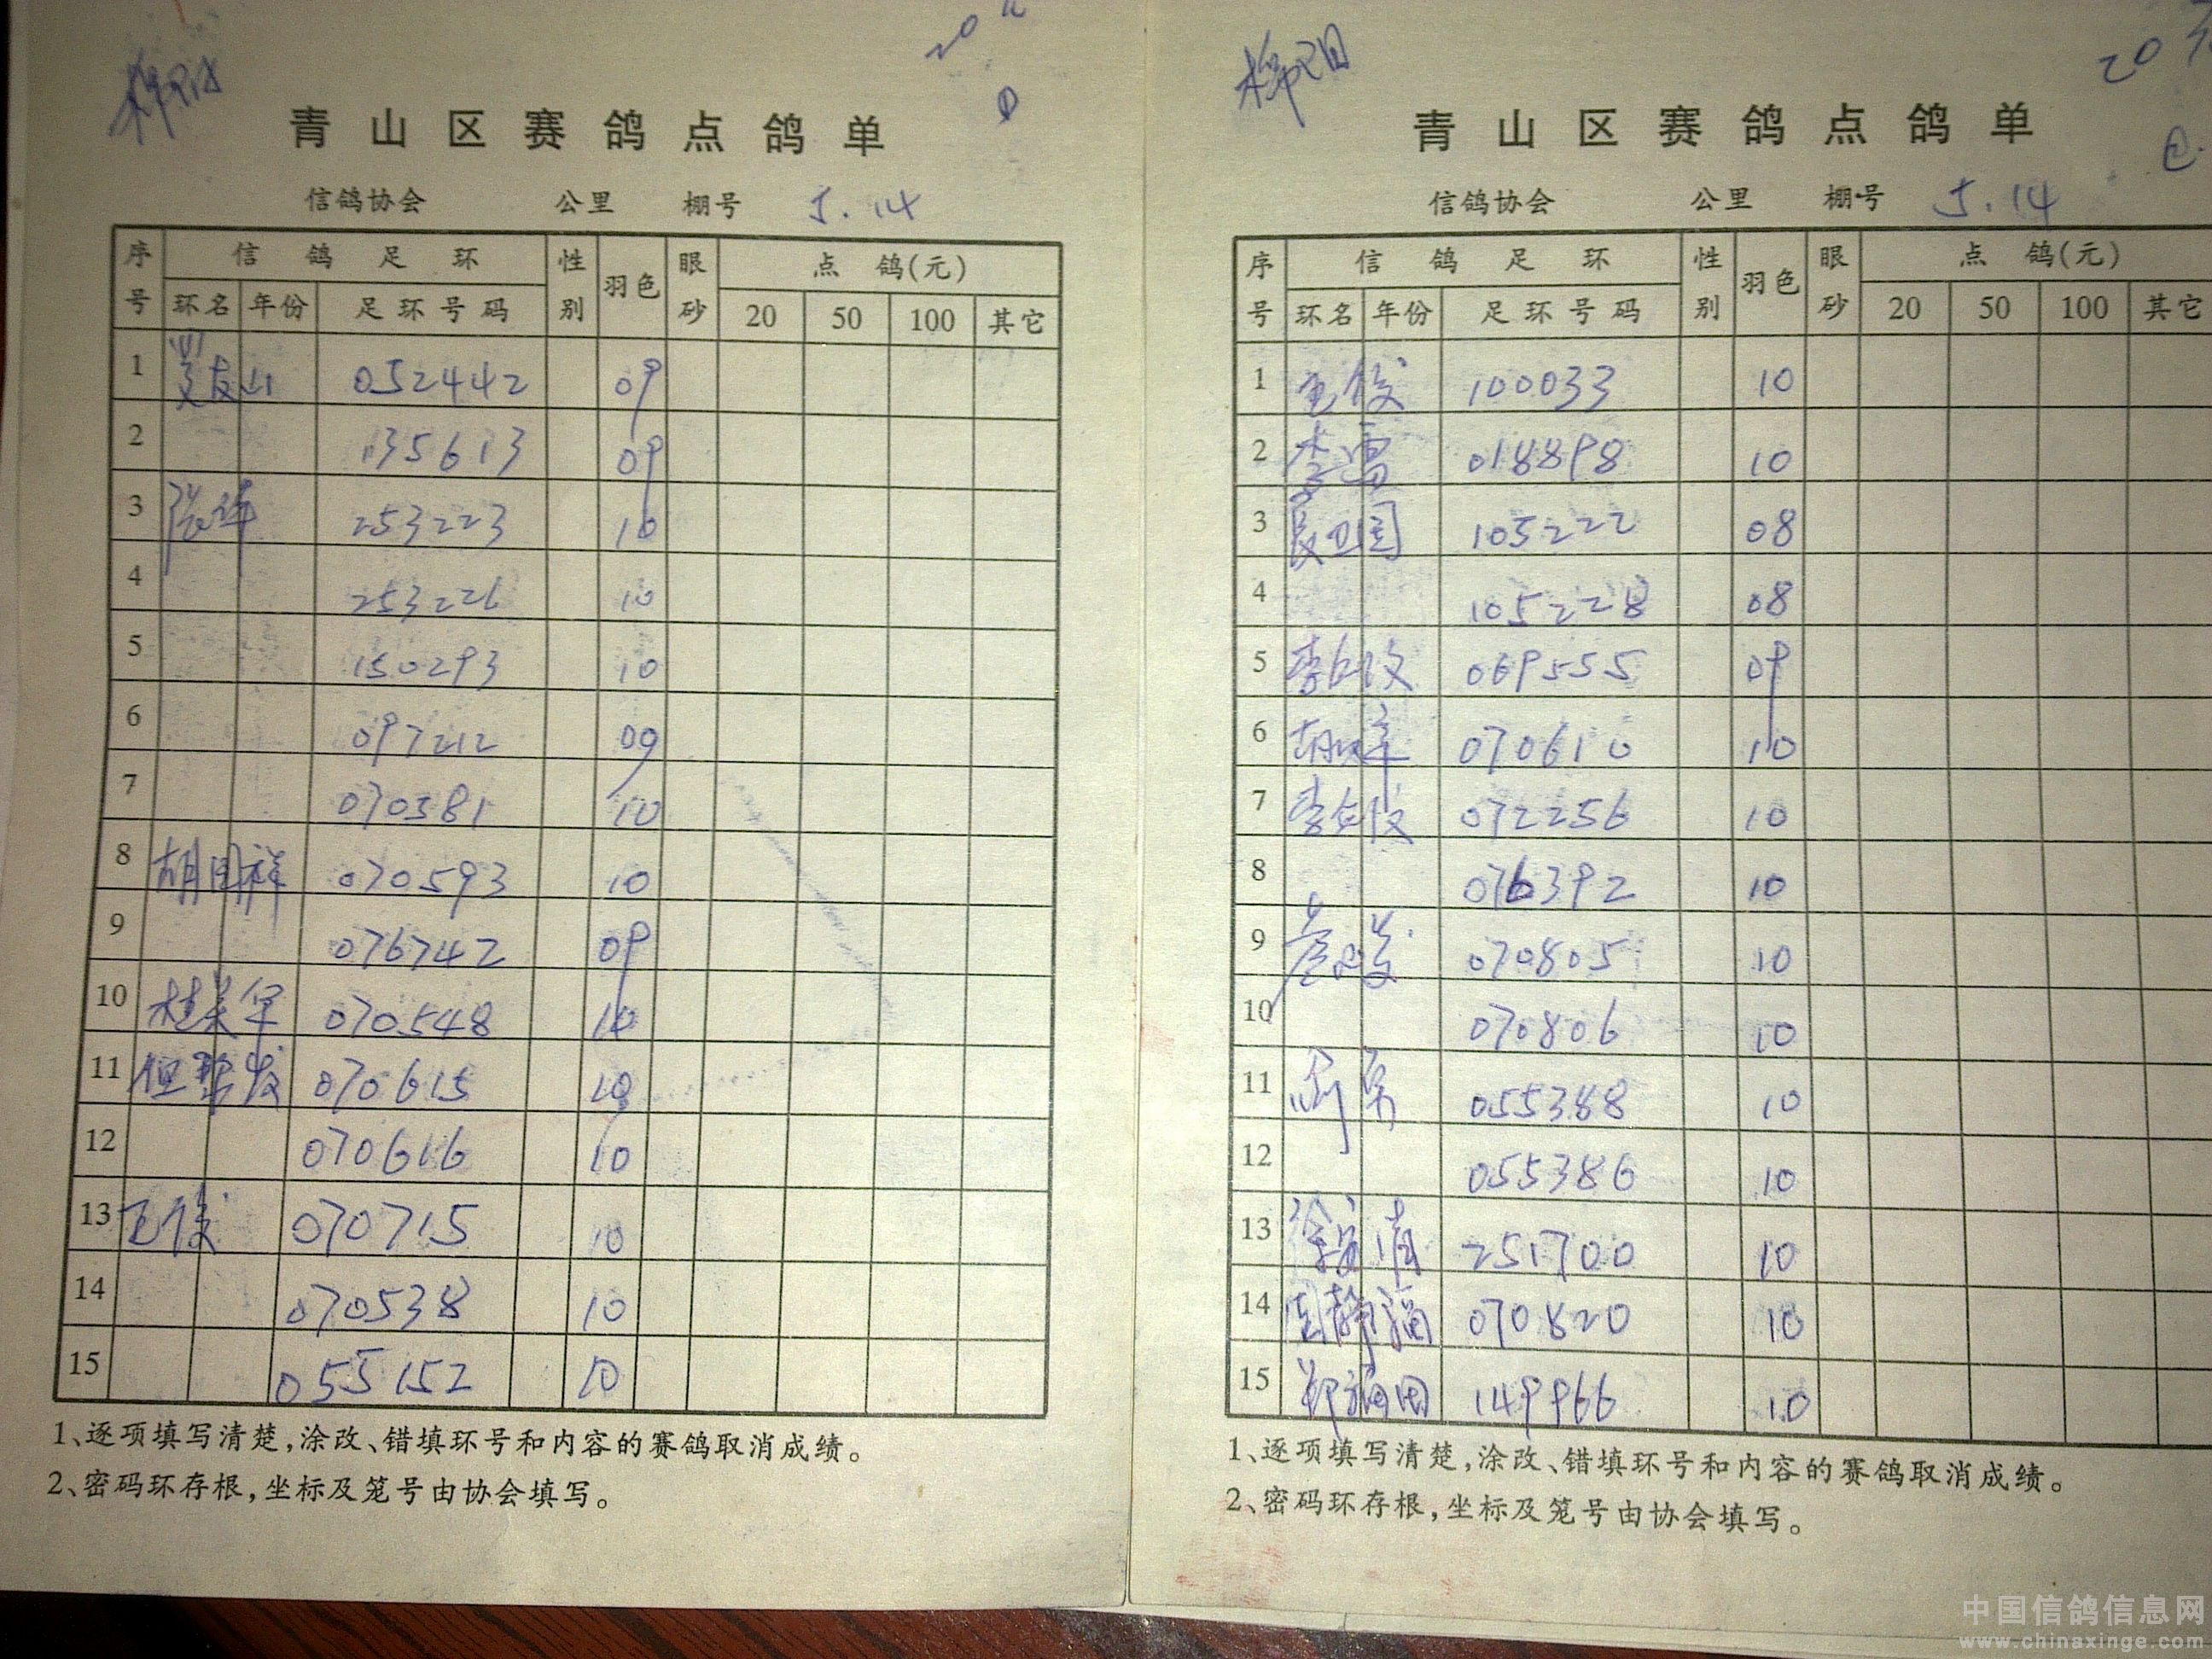 20元
①
青山区赛鸽点鸽单
信鸽协会 公里 棚号 5.14
序号 信鸽足环 性别 羽色 眼砂 点鸽(元)
环名 年份 足环号码 20 50 100 其它
1 052442 09
2 135613 09
3 张华 253223 10
4 253226 10
5 150293 10
6 097212 09
7 070381 10
8 胡国祥 070593 10
9 076742 09
10 桂美军 070548 10
11 070615 10
12 070616 10
13 王俊 070715 10
14 070538 10
15 055152 10
1、逐项填写清楚,涂改、错填环号和内容的赛鸽取消成绩。
2、密码环存根,坐标及笼号由协会填写。
20元
②
青山区赛鸽点鸽单
信鸽协会 公里 棚号 5.14
序号 信鸽足环 性别 羽色 眼砂 点鸽(元)
环名 年份 足环号码 20 50 100 其它
1 王俊 100033 10
2 李雷 018898 10
3 105222 08
4 105228 08
5 069555 09
6 070610 10
7 072256 10
8 076392 10
9 070805 10
10 070806 10
11 055388 10
12 055386 10
13 251700 10
14 070820 10
15 郑福田 149966 10
1、逐项填写清楚,涂改、错填环号和内容的赛鸽取消成绩。
2、密码环存根,坐标及笼号由协会填写。
中国信鸽信息网
www.chinaxinge.com